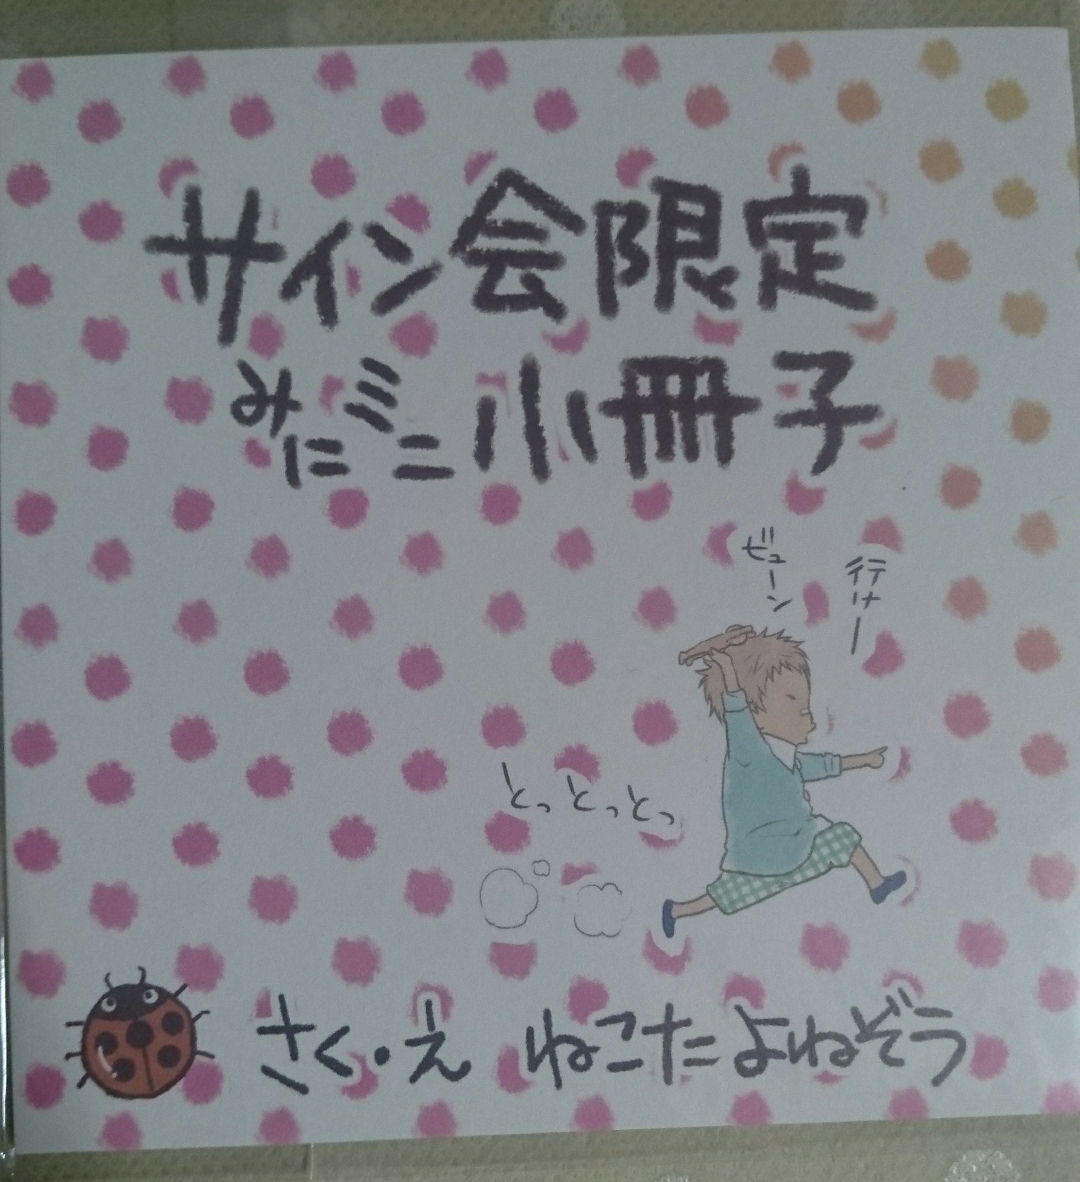 サイン会限定
みにミニ小冊子
ビューン
行けー
とっとっとっ
さく・え ねこたよねぞう